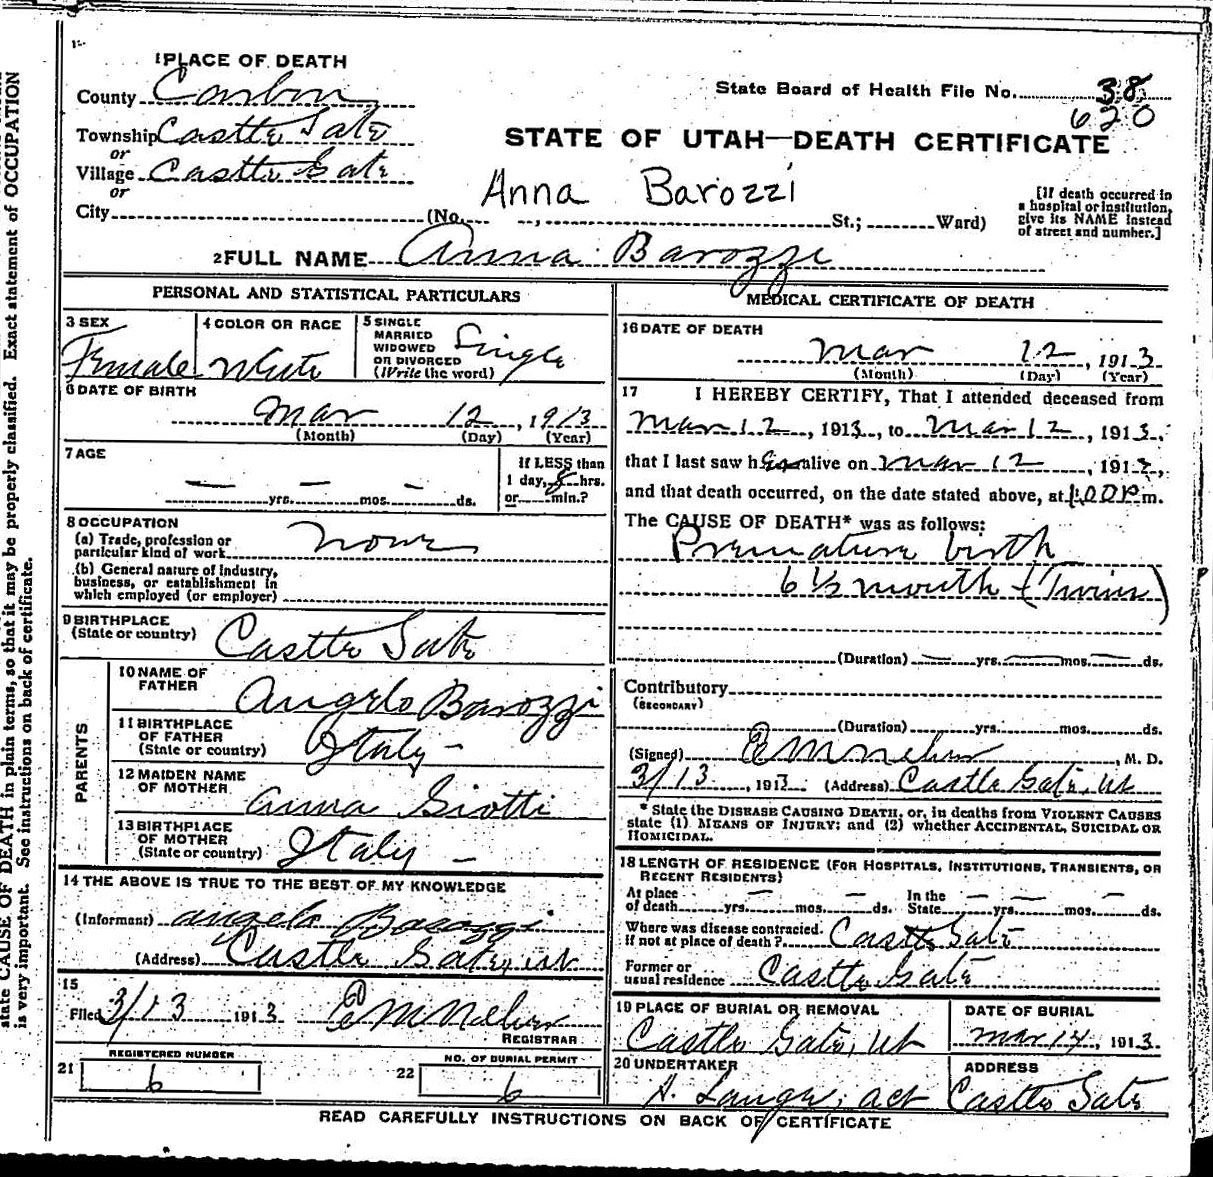 state CAUSE OF DEATH in plain terms, so that it may be properly classified. Exact statement of OCCUPATION
is very important. See instructions on back of certificate.
1 PLACE OF DEATH
County Carbon
State Board of Health File No. 38
620
Township Castle Gate
or
STATE OF UTAH—DEATH CERTIFICATE
Village Castle Gate
or
Anna Barozzi
City (No. , St.; Ward)
[If death occurred in
a hospital or institution,
give its NAME instead
of street and number.]
2 FULL NAME Anna Barozzi
PERSONAL AND STATISTICAL PARTICULARS
3 SEX
Female
4 COLOR OR RACE
White
5 SINGLE
MARRIED
WIDOWED
OR DIVORCED
(Write the word)
Single
6 DATE OF BIRTH
Mar 12, 1913
(Month) (Day) (Year)
7 AGE
— — —
yrs. mos. ds.
If LESS than
1 day, 8 hrs.
or min.?
8 OCCUPATION
(a) Trade, profession or
particular kind of work None
(b) General nature of industry,
business, or establishment in
which employed (or employer)
9 BIRTHPLACE
(State or country) Castle Gate
PARENTS
10 NAME OF
FATHER Angelo Barozzi
11 BIRTHPLACE
OF FATHER
(State or country) Italy —
12 MAIDEN NAME
OF MOTHER Anna Giotti
13 BIRTHPLACE
OF MOTHER
(State or country) Italy —
14 THE ABOVE IS TRUE TO THE BEST OF MY KNOWLEDGE
(Informant) Angelo Barozzi
(Address) Castle Gate, Ut
15
Filed 3/13 1913
REGISTRAR
REGISTERED NUMBER
21 6
NO. OF BURIAL PERMIT
22 6
MEDICAL CERTIFICATE OF DEATH
16 DATE OF DEATH
Mar 12, 1913
(Month) (Day) (Year)
17 I HEREBY CERTIFY, That I attended deceased from
Mar 12, 1913, to Mar 12, 1913,
that I last saw her alive on Mar 12, 1913,
and that death occurred, on the date stated above, at 1:00 P m.
The CAUSE OF DEATH* was as follows:
Premature birth
6 1/2 month (Twins)
(Duration) — yrs. — mos. — ds.
Contributory
(SECONDARY)
(Duration) yrs. mos. ds.
(Signed) , M. D.
3/13, 1913 (Address) Castle Gate, Ut
* State the DISEASE CAUSING DEATH, or, in deaths from VIOLENT CAUSES
state (1) MEANS OF INJURY; and (2) whether ACCIDENTAL, SUICIDAL OR
HOMICIDAL.
18 LENGTH OF RESIDENCE (FOR HOSPITALS, INSTITUTIONS, TRANSIENTS, OR
RECENT RESIDENTS)
At place
of death yrs. — mos. — ds.
In the
State — yrs. — mos. — ds.
Where was disease contracted.
if not at place of death? Castle Gate
Former or
usual residence Castle Gate
19 PLACE OF BURIAL OR REMOVAL
Castle Gate, Ut
DATE OF BURIAL
Mar 14, 1913
20 UNDERTAKER
act
ADDRESS
Castle Gate
READ CAREFULLY INSTRUCTIONS ON BACK OF CERTIFICATE